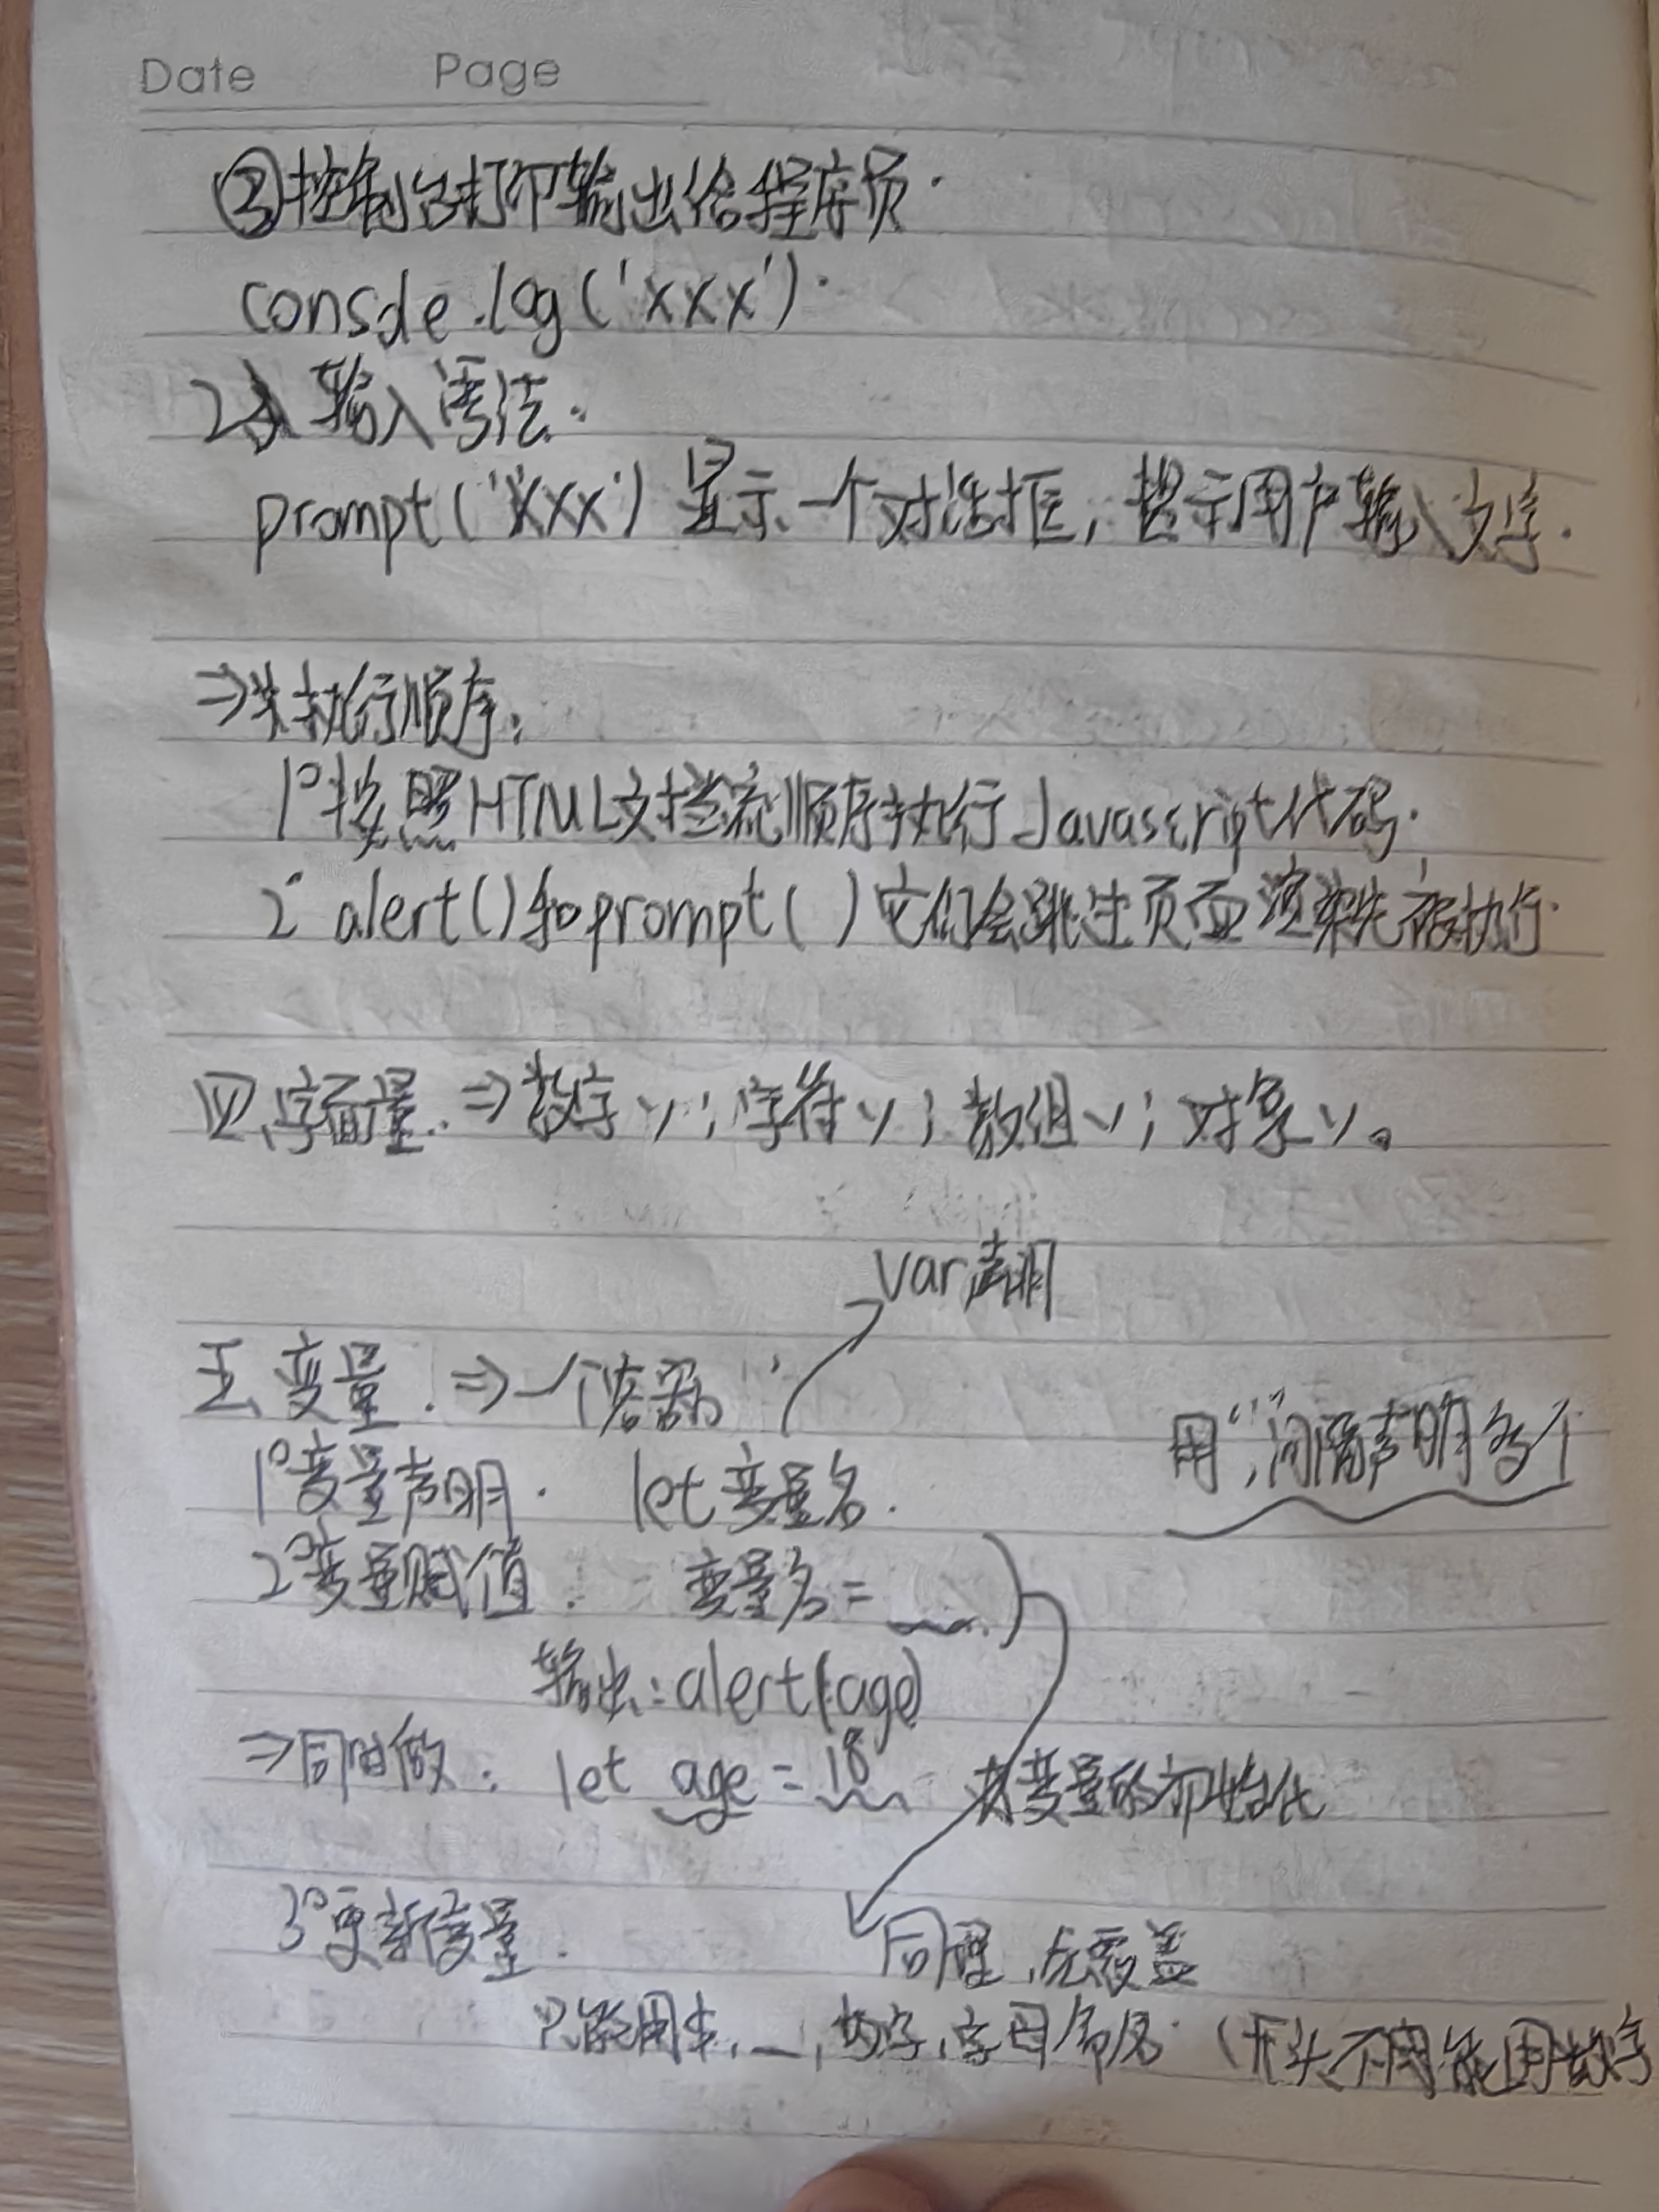 Date Page
③控制台打印输出给程序员.
console.log('xxx').
2、输入语法.
prompt('xxx') 显示一个对话框,提示用户输入文字.
⇒ 执行顺序:
1°按照HTML文档流顺序执行Javascript代码.
2° alert()和prompt()它们会跳过页面渲染先被执行.
四、字面量.⇒数字〃;字符〃;数组〃;对象〃。
var声明
五、变量.⇒一个容器
用“,”间隔声明多个
1°变量声明. let 变量名.
2°变量赋值. 变量名=
输出:alert(age)
⇒同时做: let age = 18 变量的初始化
3°更新变量.
同理,无覆盖
只能用 _,数字,字母命名.(开头不能用数字